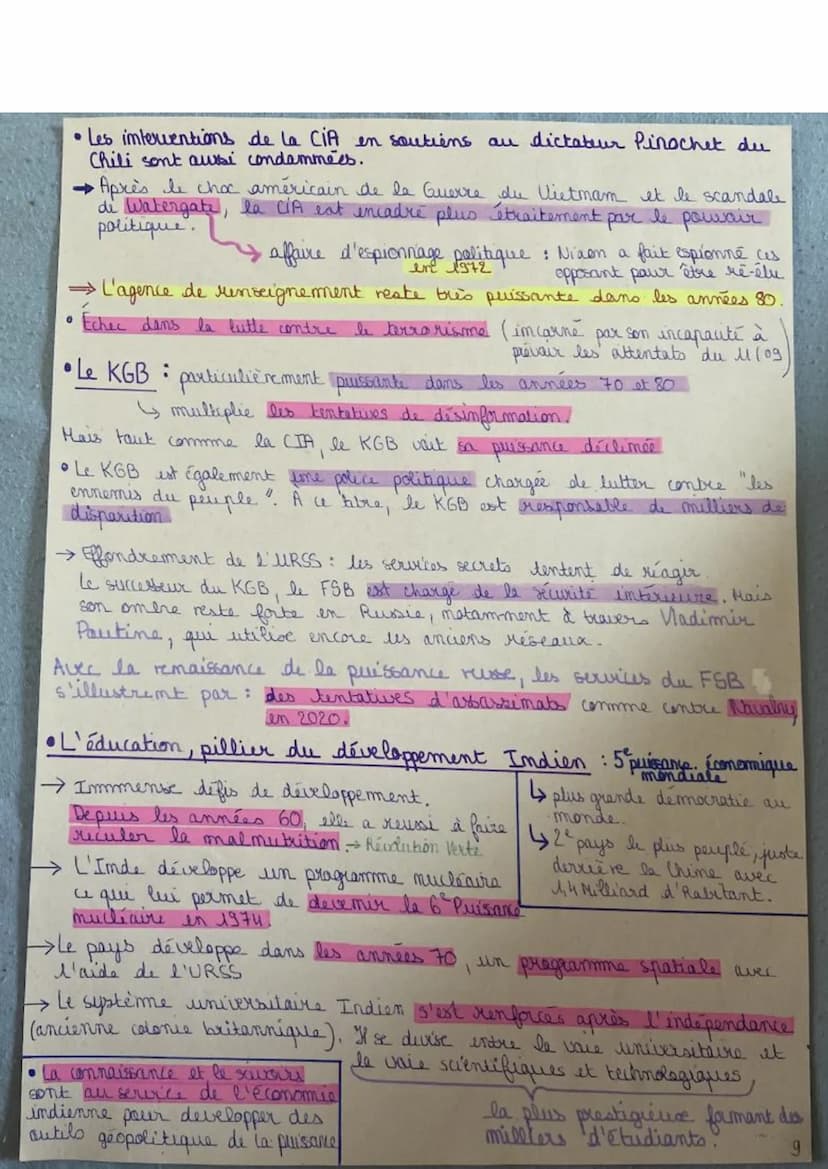 • Les interventions de la CIA en soutiens au dictateur Pinochet du
Chili sont aussi condamnées.
→ Après le choc américain de la Guerre du Vietnam et le scandale
de Watergate, la CIA est encadré plus étraitement par le pouvoir
politique.
→ affaire d'espionnage politique : Nixon a fait espionné ces
en 1972 opposant pour être ré-élu
⇒ L'agence de renseignement reste très puissante dans les années 80.
• Échec dans la lutte contre le terrorisme (incarné par son incapacité à
prévoir les attentats du 11/09)
• Le KGB : particulièrement puissante dans les années 70 et 80
↳ multiplie les tentatives de désinformation.
Mais tout comme la CIA, le KGB voit sa puissance déclinée
• Le KGB est également une police politique chargée de lutter contre "les
ennemis du peuple". À ce titre, le KGB est responsable de milliers de
disparition
→ Effondrement de l'URSS : les services secrets tentent de réagir.
Le successeur du KGB, le FSB est chargé de la sécurité intérieure. Mais
son ombre reste forte en Russie, notamment à travers Vladimir
Poutine, qui utilise encore les anciens réseaux.
Avec la renaissance de la puissance russe, les services du FSB
s'illustrent par : des tentatives d'assassinats comme contre Navalny
en 2020.
• L'éducation, pillier du développement Indien : 5e puissance économique
mondiale
→ Immmense défis de développement.
Depuis les années 60, elle a reussi à faire
reculer la malnutrition. → Révolution Verte
↳ plus grande démocratie au
monde.
↳ 2e pays le plus peuplé, juste
derrière la Chine avec
1,4 Milliard d'Habitant.
→ L'Inde développe un programme nucléaire
ce qui lui permet de devenir la 6e Puissance
nucléaire en 1974.
→ Le pays développe dans les années 70, un programme spatiale avec
l'aide de l'URSS
→ Le système universitaire Indien s'est renforcés après l'indépendance
(ancienne colonie britannique). Il se divise entre la voie universitaire et
la voie scientifiques et technologiques,
la plus prestigieuse formant des
milliers d'Étudiants.
• La connaissance et le savoirs
sont au service de l'économie
indienne pour developper des
outils géopolitique de la puissance
9